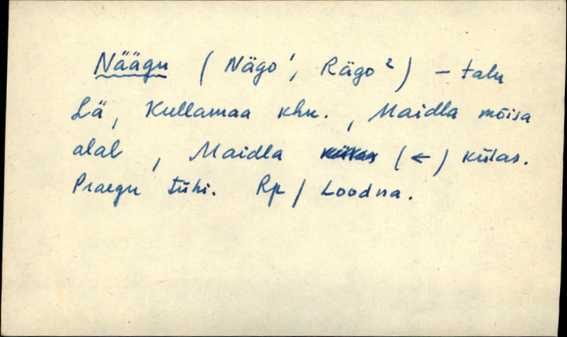 Näägu (Nägo¹, Rägo²) – talu
Lä, Kullamaa khn., Maidla mõisa
alal, Maidla (←) külas.
Praegu tühi. Rp / Loodna.